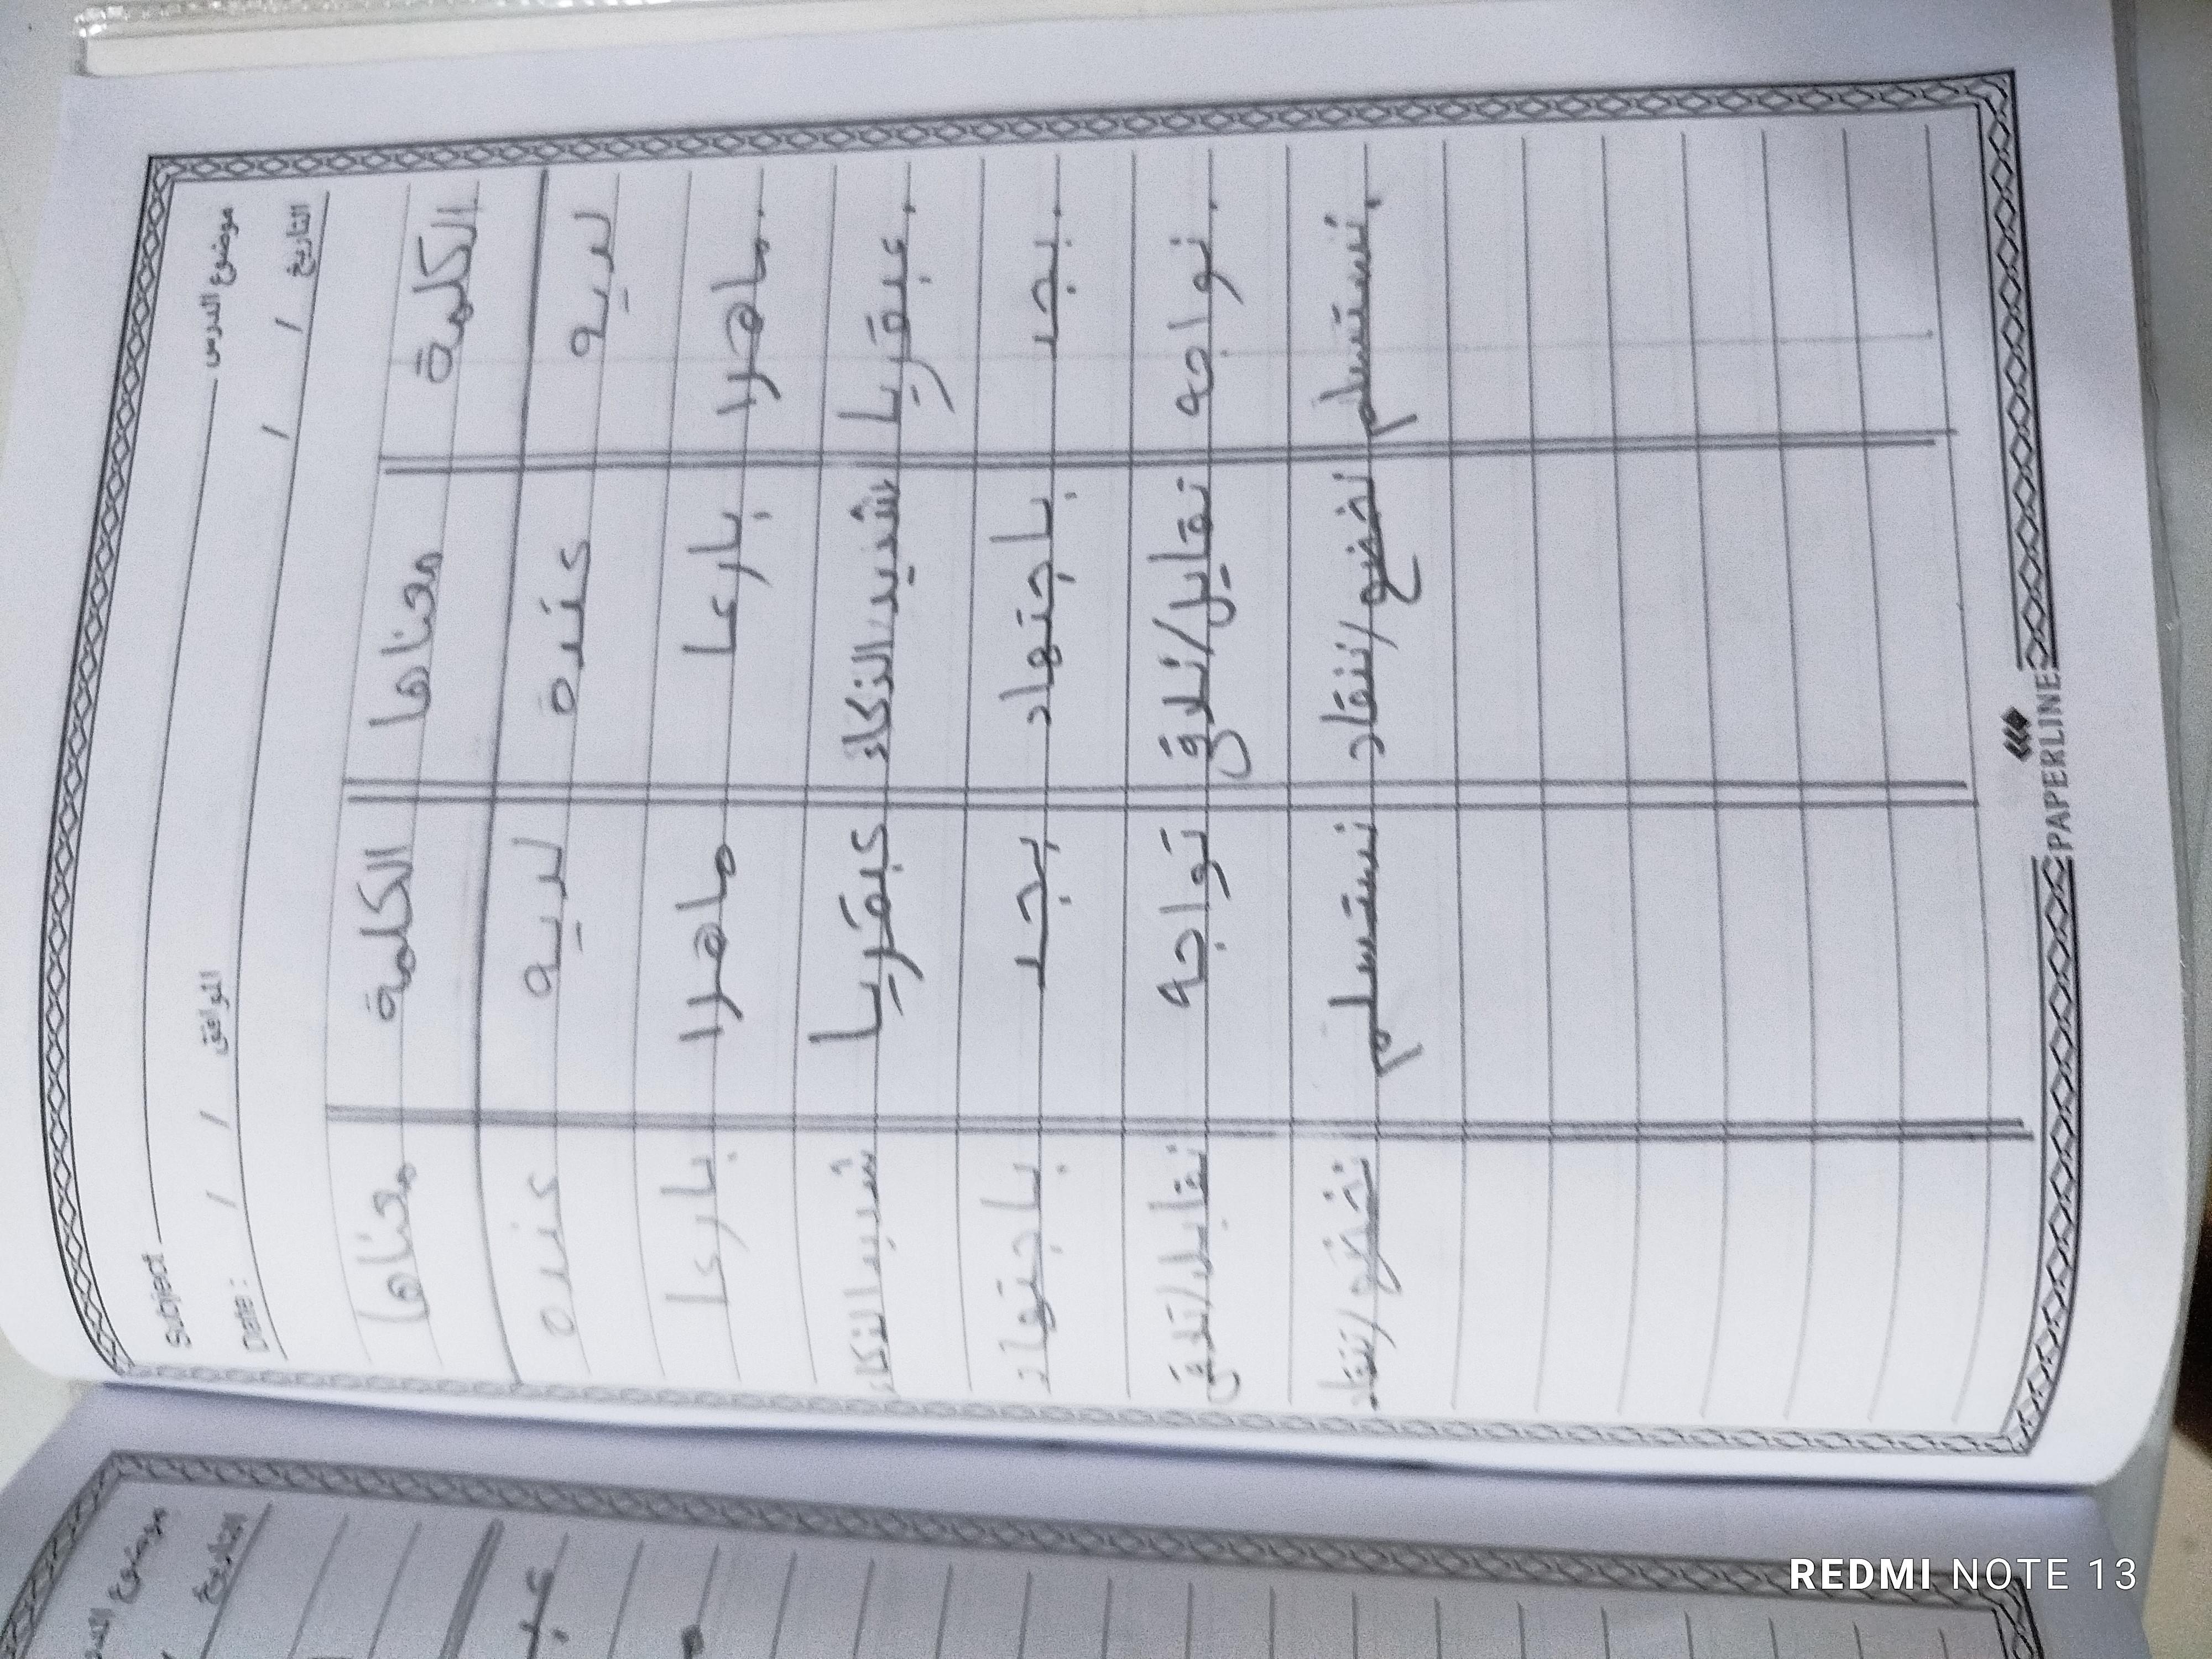 موضوع الدرس Subject
التاريخ / / الموافق / / Date :
الكلمة معناها الكلمة معناها
لديه عنده لديه عنده
ماهرا بارعا ماهرا بارعا
عبقريا شديد الذكاء عبقريا شديد الذكاء
بجد باجتهاد بجد باجتهاد
نواجه نقابل/نلاقي تواجه نقابل/نلاقي
نستسلم نخضع/ننقاد نستسلم نخضع/ننقاد
PAPERLINE
موضوع
التاريخ
REDMI NOTE 13